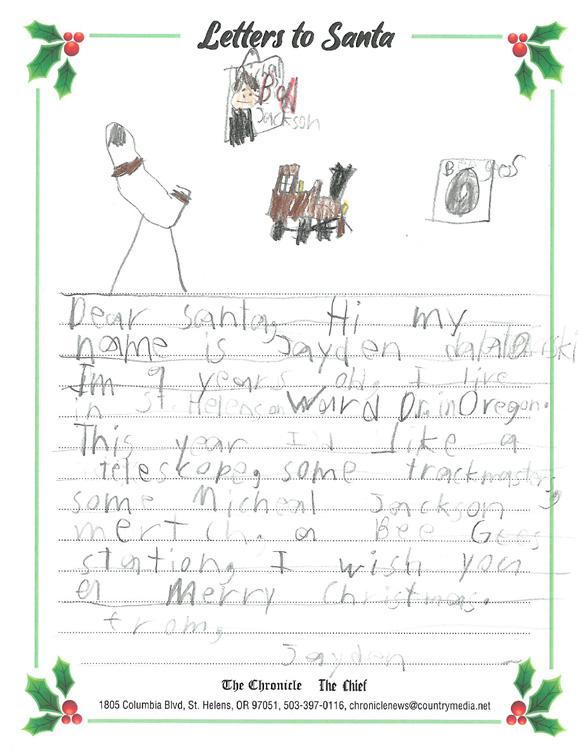 Letters to Santa
Bad
Jackson
Bee gees
Dear santa, Hi my
name is Jayden
Im 9 years old. I live
in St. Helens on Ward Dr. in Oregon.
This year I'd like a
telescope, some trackmasters,
some Micheal Jackson
mertch, a Bee Gees
station, I wish you
a Merry Christmas.
from,
Jayden
The Chronicle The Chief
1805 Columbia Blvd, St. Helens, OR 97051, 503-397-0116, chroniclenews@countrymedia.net